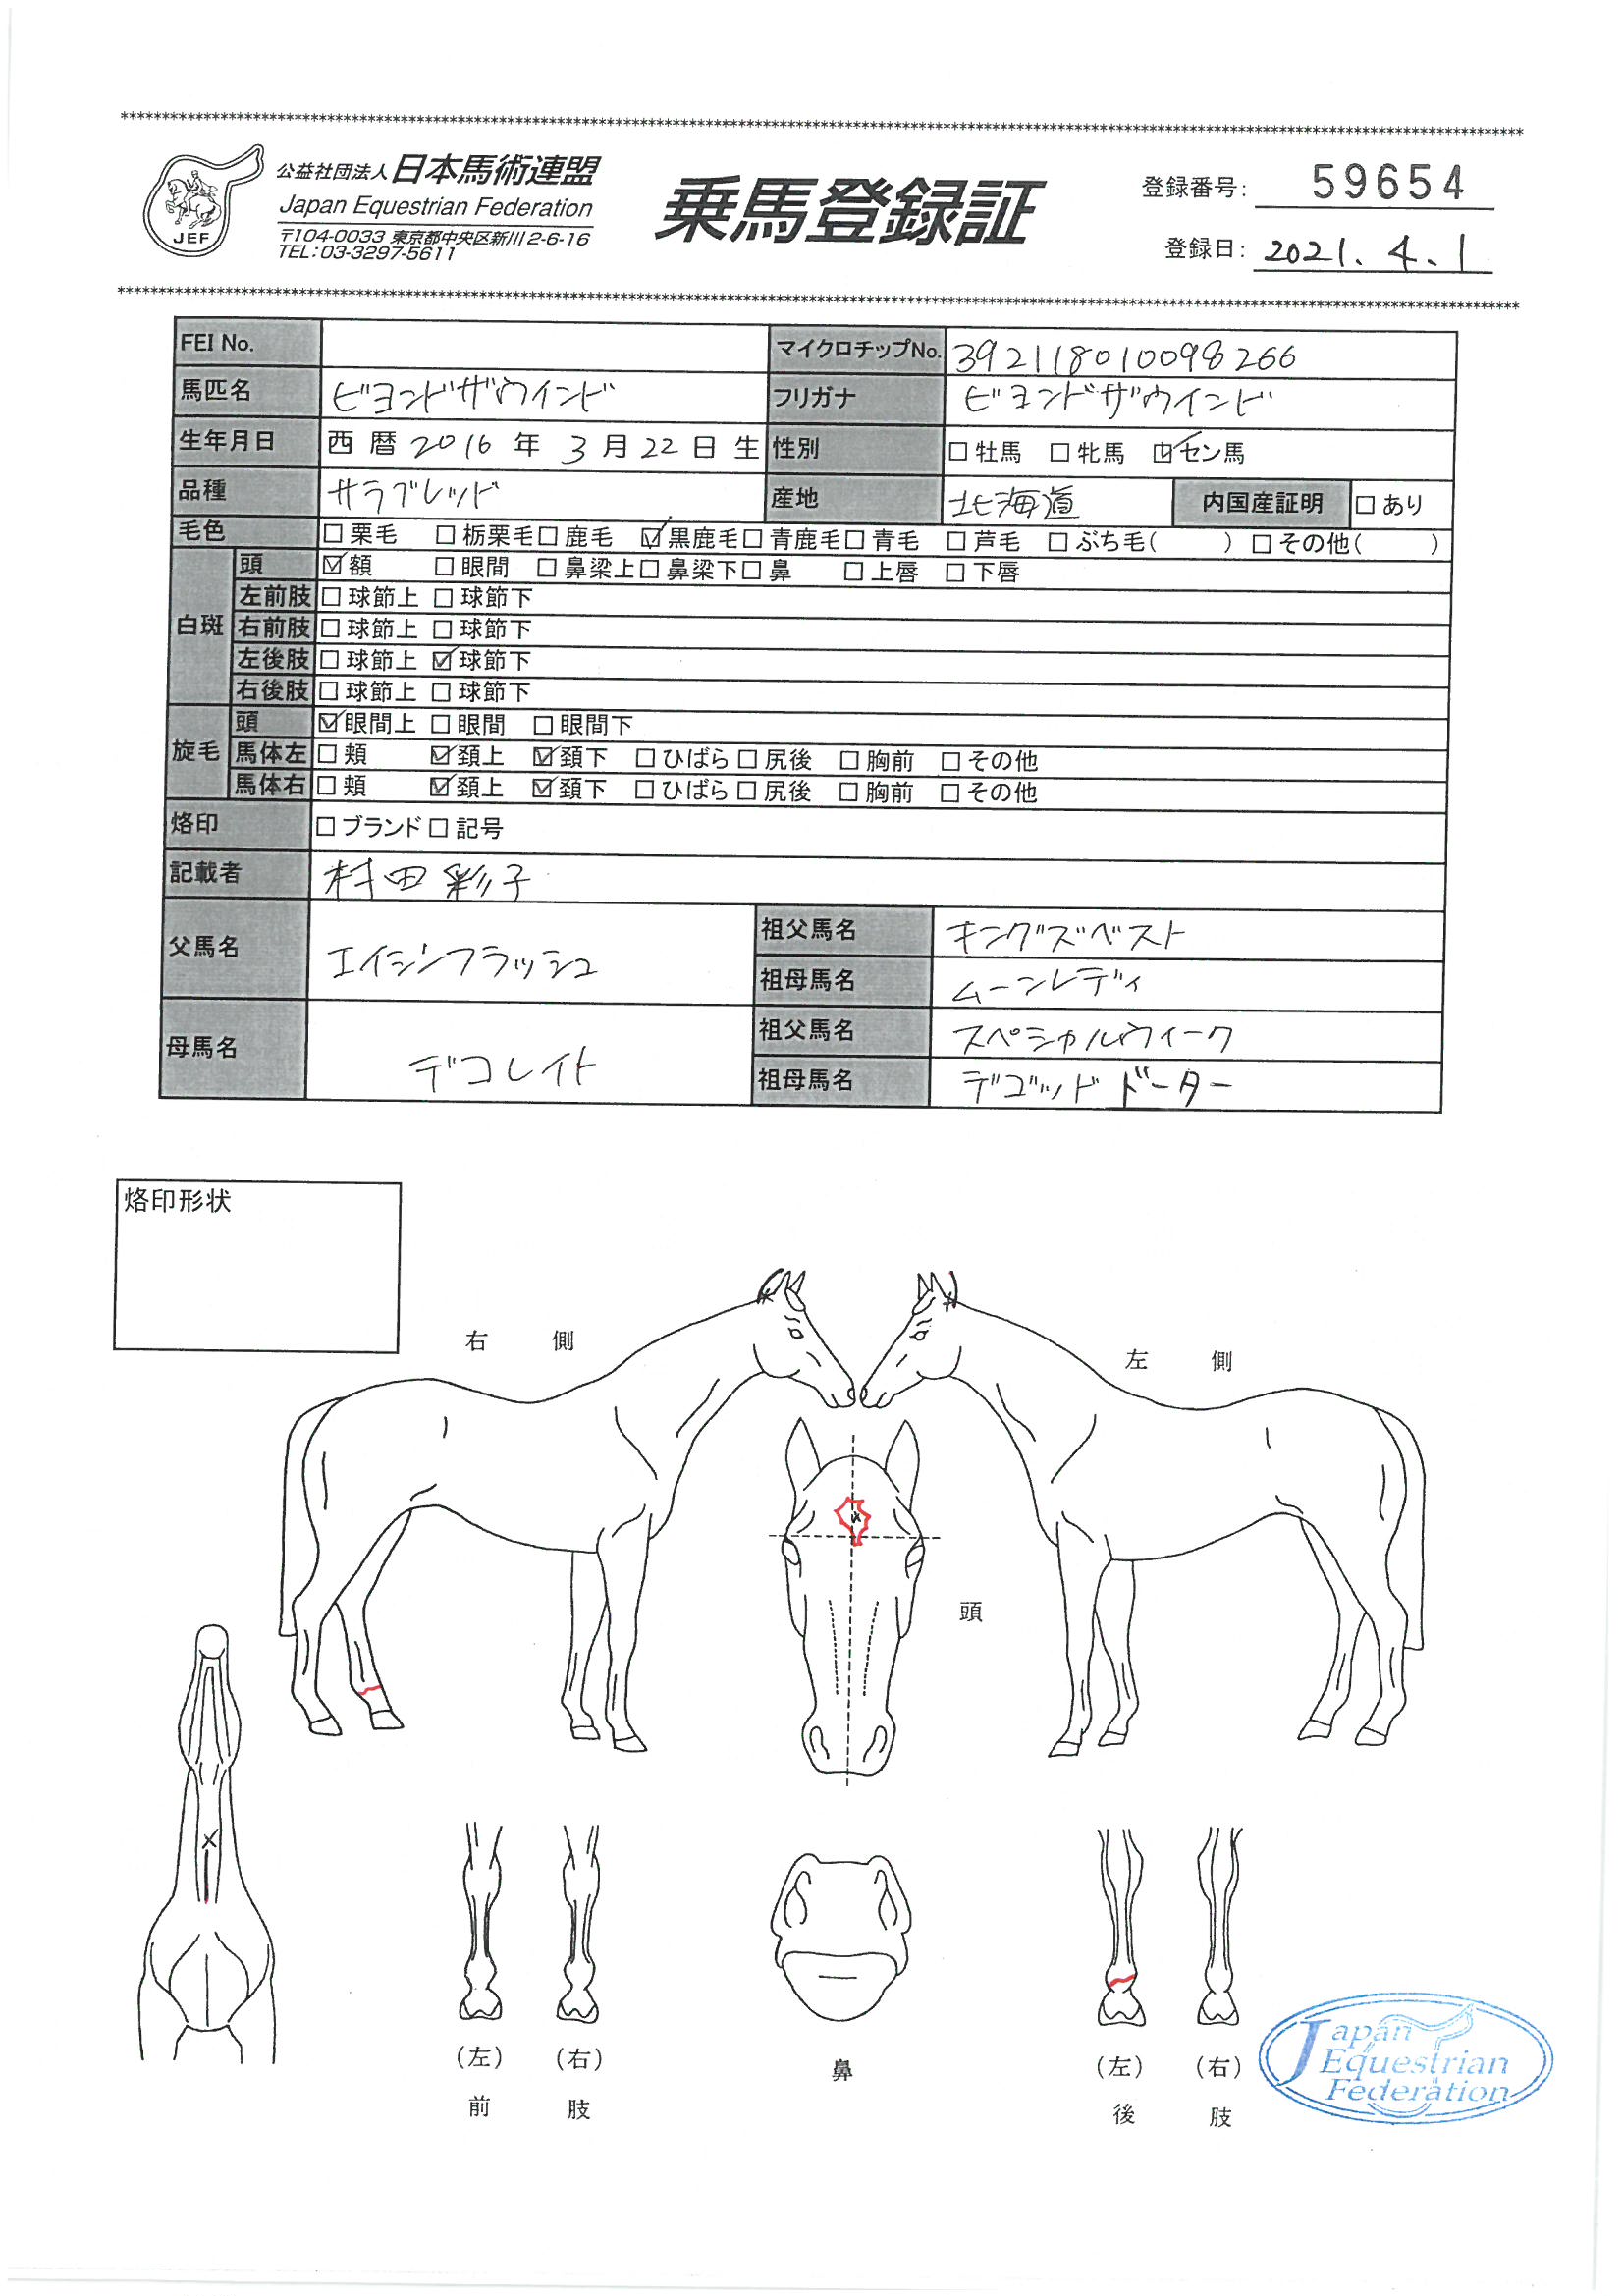 ************************************************************
公益社団法人 日本馬術連盟
Japan Equestrian Federation
〒104-0033 東京都中央区新川2-6-16
TEL:03-3297-5611
JEF
乗馬登録証
登録番号: 59654
登録日: 2021.4.1
************************************************************
FEI No. マイクロチップNo. 392118010098266
馬匹名 ビヨンドザウインド フリガナ ビヨンドザウインド
生年月日 西暦2016年3月22日生 性別 □牡馬 □牝馬 ☑セン馬
品種 サラブレッド 産地 北海道 内国産証明 □あり
毛色 □栗毛 □栃栗毛 □鹿毛 ☑黒鹿毛 □青鹿毛 □青毛 □芦毛 □ぶち毛( ) □その他( )
白斑 頭 ☑額 □眼間 □鼻梁上 □鼻梁下 □鼻 □上唇 □下唇
左前肢 □球節上 □球節下
右前肢 □球節上 □球節下
左後肢 □球節上 ☑球節下
右後肢 □球節上 □球節下
旋毛 頭 ☑眼間上 □眼間 □眼間下
馬体左 □頬 ☑頚上 ☑頚下 □ひばら □尻後 □胸前 □その他
馬体右 □頬 ☑頚上 ☑頚下 □ひばら □尻後 □胸前 □その他
烙印 □ブランド □記号
記載者 村田彩子
父馬名 エイシンフラッシュ 祖父馬名 キングズベスト
祖母馬名 ムーンレディ
母馬名 デコレイト 祖父馬名 スペシャルウィーク
祖母馬名 デユプッドドーター
烙印形状
右側
左側
頭
(左) (右)
前肢
鼻
(左) (右)
後肢
Japan
Equestrian
Federation